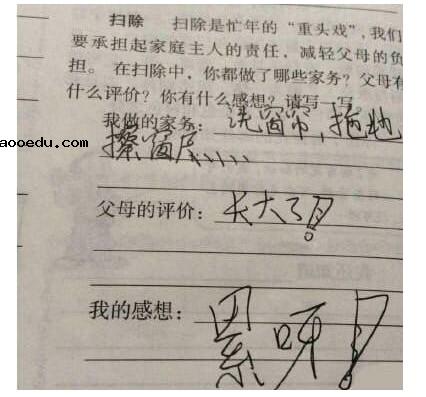 扫除 扫除是忙年的“重头戏”,我们
要承担起家庭主人的责任，减轻父母的负
担。在扫除中，你都做了哪些家务？父母有
什么评价？你有什么感想？请写一写。
我做的家务：洗窗帘，拖地
aooedu.com
擦窗户、、、、、
父母的评价：长大了！
我的感想：累呀！